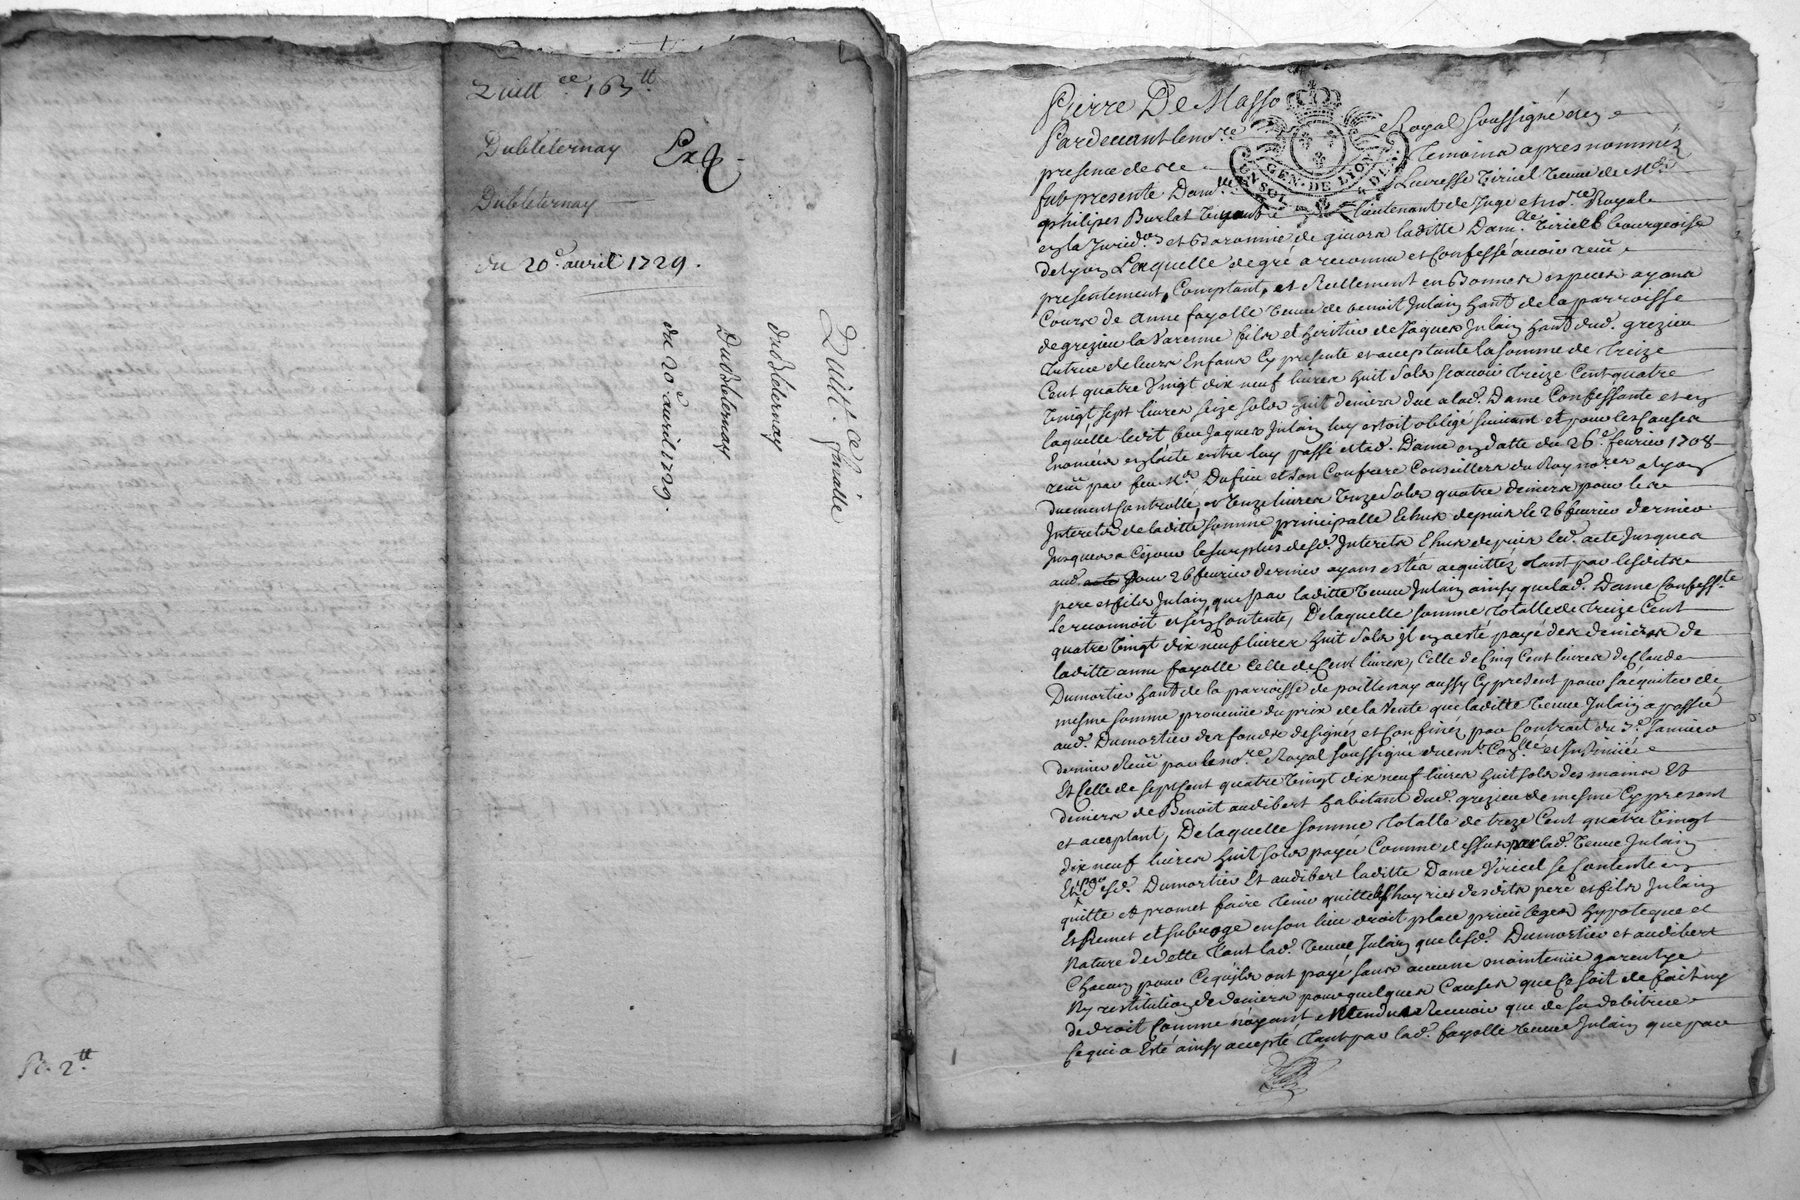 Quitt.ce 163tt
Dubleternay Exp
Dubleternay
du 20e auril 1729.
Quitt.ce
dubleternay
Dubleternay
du 20e auril 1729.
R. 2tt
Pierre De Masso
Pardeuant le no.re Royal soussigné et en
presence de temoins apres nommez
fut presente Dam.lle Lucresse Viricel veuue de Mre
philipes Burlat viuant lieutenant de Juge et no.re Royal
en la Jurid.on et Baronnie de giuors laditte Dam.lle Viricel bourgeoise
de Lyon Laquelle de gré a reconnu et Confessé auoir receu
presentement, Comptant, et Reellement en Bonnes especes ayans
Cours de anne fayolle veuue de benoit Julain hant de la parroisse
de grezieu la Varenne fils et heritier de Jaques Julain hant dud. grezieu
tutrice de leurs Enfans Cy presente et acceptante la somme de treize
Cent quatre vingt dix neuf liures huit sols scauoir treize Cent quatre
vingt sept liures seize sols huit deniers due a lad. Dame Confessante et en
laquelle ledit feu Jaques Julain luy estoit obligé suiuant et pour les Causes
Enoncées en l'acte entre luy passé et lad. Dame en datte du 26e feurier 1708
receu par feu Me. Dufieu et son Confrere Conseillers du Roy no.res a lyon
duement Controllé, et vnze liures vnze sols quatre deniers pour les
Interets de laditte somme principalle echus depuis le 26 feurier dernier
Jusques a Ce jour le surplus desd. Interets Echus depuis led. acte Jusques
aud. jour 26 feurier dernier ayans estéz acquittéz tant par lesdits
pere et fils Julain que par laditte veuue Julain ainsy que lad. Dame Confess.te
le reconnoit et s'en Contente, De laquelle somme totalle de treize Cent
quatre vingt dix neuf liures huit sols il en a esté payé des deniers de
laditte anne fayolle Celle de Cent liures, Celle de Cinq Cent liures de Claude
Dumortier hant de la parroisse de poillenay aussy Cy present pour s'acquiter de
mesme somme prouenüe du prix de la Vente que laditte veuue Julain a passée
aud. Dumortier des fonds designés et Confinés par Contrait du 3e Januier
dernier Receu par le no.re Royal soussigné duem.t Con.llé et Insinüé
Et Celle de sept Cent quatre vingt dix neuf liures huit sols des mains Et
deniers de Benoit audibert habitant dud. grezieu de mesme Cy present
et acceptant, De laquelle somme totalle de treze Cent quatre vingt
dix neuf liures huit sols payée Comme dessus par lad. veuue Julain
Et lesd. Dumortier Et audibert laditte Dame Viricel se Contente en
quitte et promet faire tenir quitte les hoyries desdits pere et fils Julain
Et Remet et subroge en son lieu droit place priuileges hypoteque et
Nature de dette tant lad. veuue Julain que lesd. Dumortier et audibert
Chacun pour Ce qu'ils ont payé sans aucune maintenüe garentye
Ny restitution de deniers pour quelques Causes que Ce soit de fait ny
de droit Comme n'ayant entendu Receuoir que de sa debitrice
Ce qui a Esté ainsy accepté tant par lad. fayolle veuue Julain que par